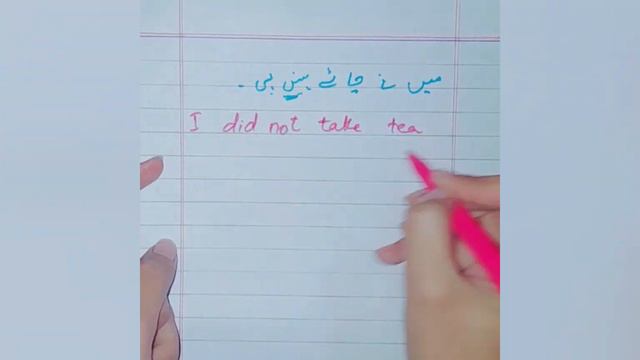 میں نے چائے نہیں پی ۔
I did not take tea